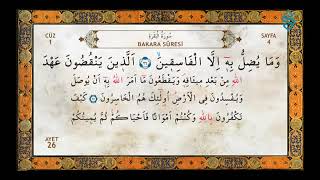 CÜZ
1
سُورَةُ الْبَقَرَةِ
BAKARA SÛRESİ
SAYFA
4
وَمَا يُضِلُّ بِهِ إِلَّا الْفَاسِقِينَ ﴿٢٦﴾ الَّذِينَ يَنْقُضُونَ عَهْدَ
اللهِ مِنْ بَعْدِ مِيثَاقِهِ وَيَقْطَعُونَ مَا أَمَرَ اللهُ بِهِ أَنْ يُوصَلَ
وَيُفْسِدُونَ فِي الْأَرْضِ أُولَٰئِكَ هُمُ الْخَاسِرُونَ ﴿٢٧﴾ كَيْفَ
تَكْفُرُونَ بِاللهِ وَكُنْتُمْ أَمْوَاتًا فَأَحْيَاكُمْ ثُمَّ يُمِيتُكُمْ
AYET
26